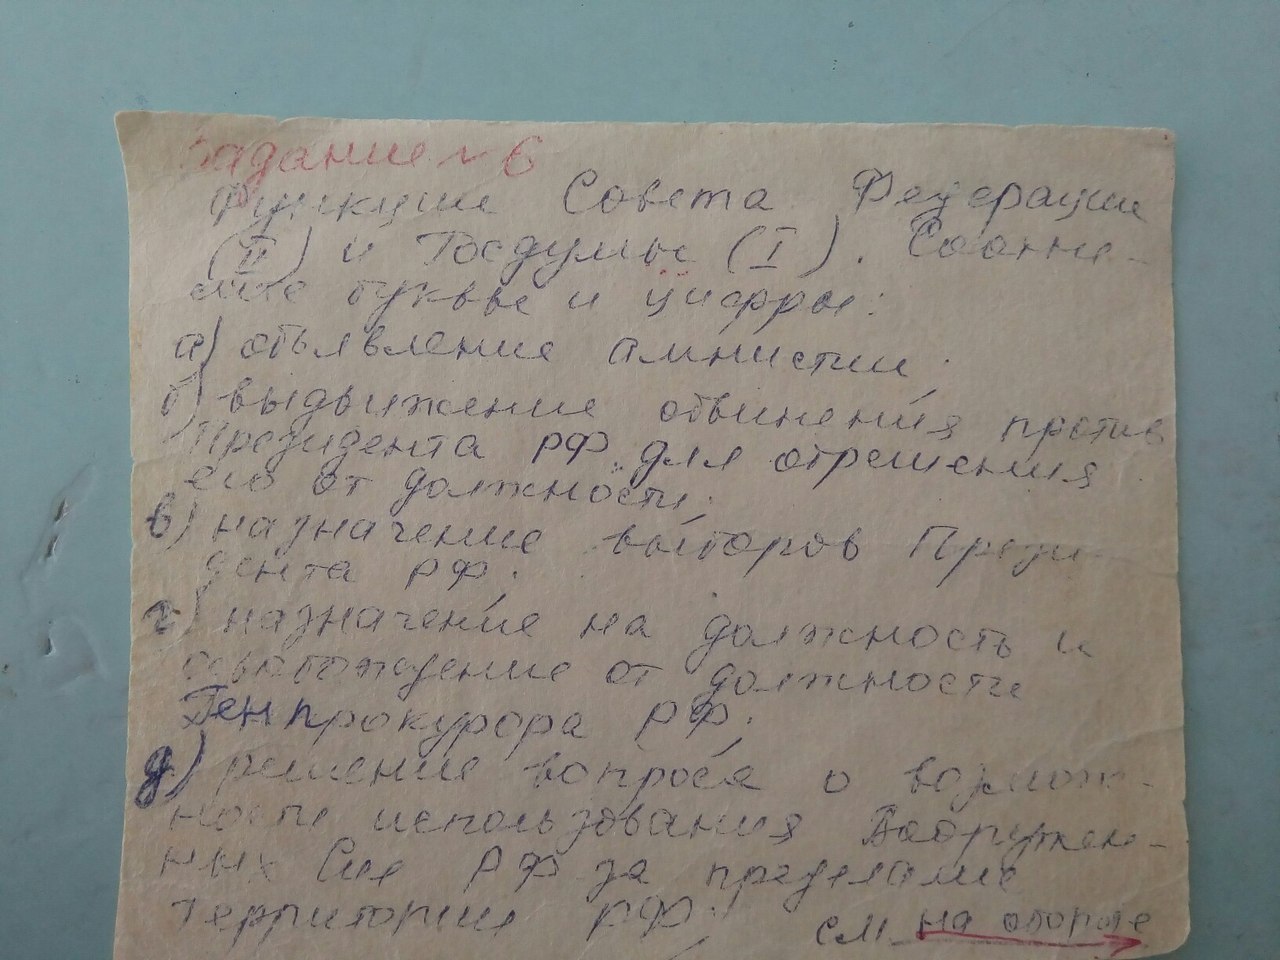 Задание № 6
Функции Совета Федерации
(II) и Госдумы (I). Соотне-
сите буквы и цифры:
а) объявление амнистии;
б) выдвижение обвинения против
Президента РФ для отрешения
его от должности;
в) назначение выборов Прези-
дента РФ;
г) назначение на должность и
освобождение от должности
Генпрокурора РФ;
д) решение вопроса о возмож-
ности использования Вооружен-
ных Сил РФ за пределами
территории РФ;
см. на обороте